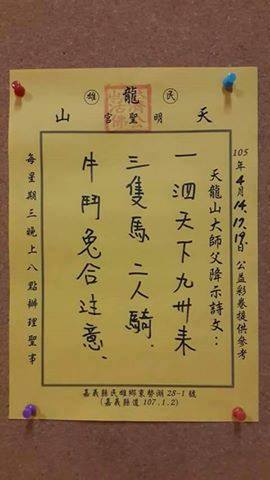 民雄
天龍山
明聖宮
105年4月14.17.19日公益彩卷提供參考
天龍山大師父降示詩文：
一泗天下九卅來
三隻馬二人騎.
牛鬥兔合注意.
每星期三晚上八點辦理聖事
嘉義縣民雄鄉東勢湖28-1號
(嘉義縣道107.1.2)